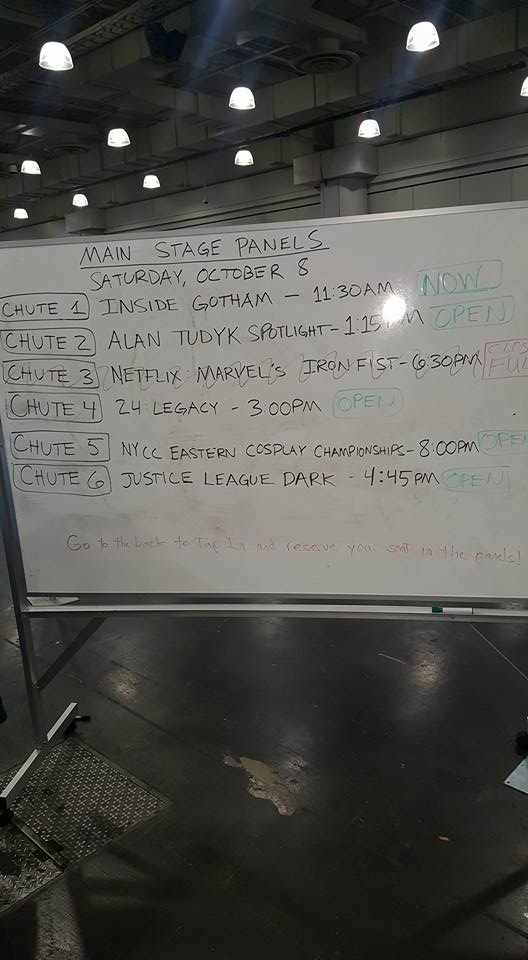 MAIN STAGE PANELS
SATURDAY, OCTOBER 8
CHUTE 1 INSIDE GOTHAM - 11:30AM NOW
CHUTE 2 ALAN TUDYK SPOTLIGHT - 1:15 PM OPEN
CHUTE 3 NETFLIX: MARVEL'S IRON FIST - 6:30PM
CHUTE 4 24: LEGACY - 3:00PM OPEN
CHUTE 5 NYCC EASTERN COSPLAY CHAMPIONSHIPS - 8:00PM OPEN
CHUTE 6 JUSTICE LEAGUE DARK - 4:45PM OPEN
Go to the back to Tap In and reserve your seat in the panels!